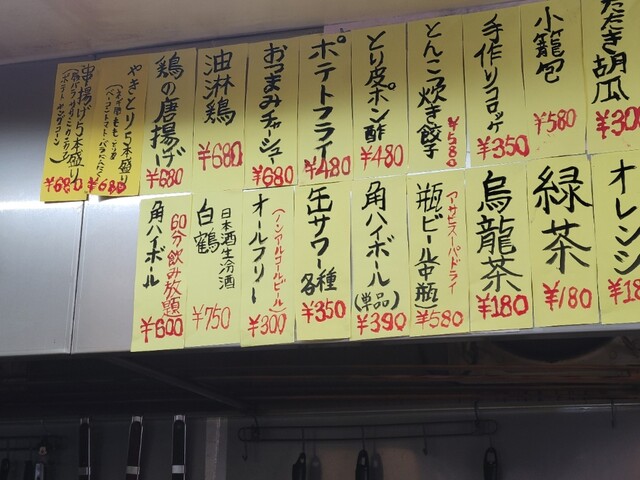 たたき胡瓜
¥300
小籠包
¥580
手作りコロッケ
¥350
とんこつ炊き餃子
¥580
とり皮ポン酢
¥480
ポテトフライ
¥480
おつまみチャーシュー
¥680
油淋鶏
¥680
鶏の唐揚げ
¥680
やきとり5本盛り
¥680
串揚げ5本盛り
¥680
オレンジ
緑茶
¥180
烏龍茶
¥180
アサヒスーパードライ
瓶ビール中瓶
¥580
角ハイボール
(単品)
¥390
缶サワー各種
¥350
(ノンアルコールビール)
オールフリー
¥300
日本酒生冷酒
白鶴
¥750
60分飲み放題
角ハイボール
¥600